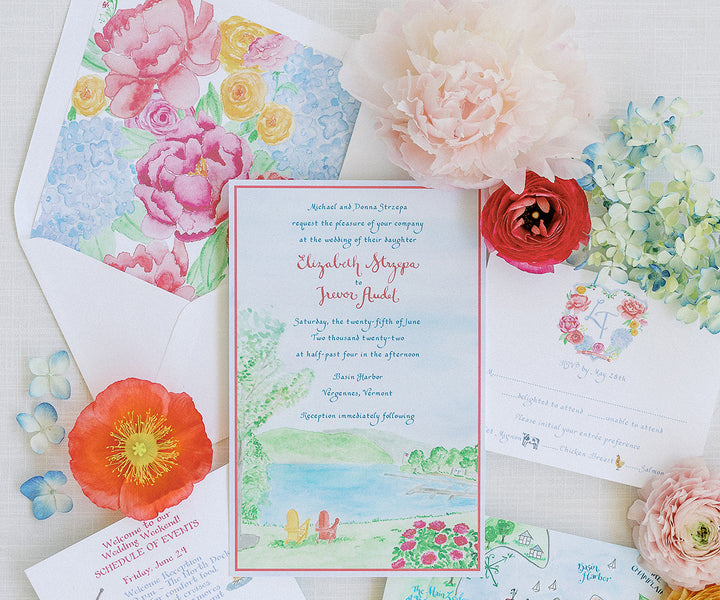 Michael and Donna Strzepa
request the pleasure of your company
at the wedding of their daughter
Elizabeth Strzepa
to
Trevor Audet
Saturday, the twenty-fifth of June
Two thousand twenty-two
at half-past four in the afternoon
Basin Harbor
Vergennes, Vermont
Reception immediately following
RSVP by May 28th
M
delighted to attend unable to attend
Please initial your entrée preference
et Mignon Chicken Breast Salmon
Welcome to our
Wedding Weekend!
SCHEDULE OF EVENTS
Friday, June 24
Welcome Reception
The North Dock
comfort food
Basin
Harbor
CHAMPLAIN
The Main